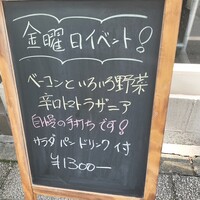 金曜日イベント!
ベーコンといろいろ野菜
辛口トマトラザニア
自慢の手打ちです!
サラダ パン ドリンク 付
¥1300-